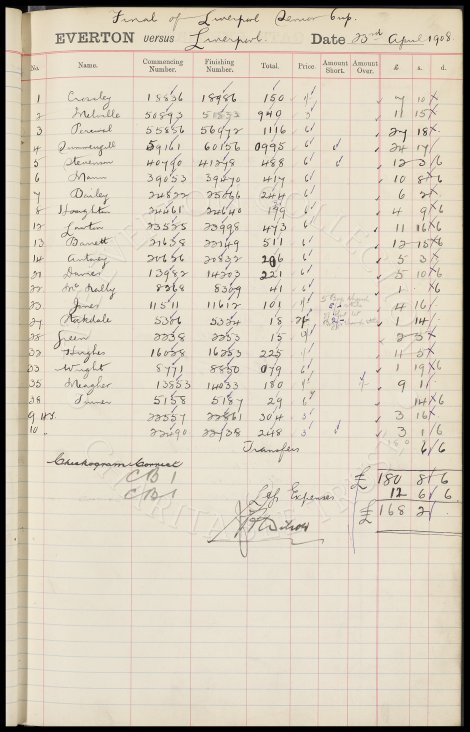 Final of Liverpool Senior Cup.
EVERTON versus Liverpool. Date 23rd April 1908
No. Name. Commencing Number. Finishing Number. Total. Price. Amount Short. Amount Over. £ s. d.
1 Crossley 18836 18986 150 7 10
2 Melville 50893 940 3 11 15
3 Percival 55856 56972 1116 6 27 18
4 59161 60156 0995 6 24 17
5 Stevenson 40790 41278 488 6 12 3 6
6 Mann 39053 39470 417 6 10 8 6
7 Dailey 24822 25066 244 6 6 2
8 Houghton 24461 24640 179 6 4 9 6
12 Lawton 23525 23998 473 6 11 16 6
13 Barrett 21638 22149 511 6 12 15 6
14 20626 20832 206 6 5 3
21 Davies 13982 14203 221 6 5 10 6
22 McNally 8268 8309 41 6 1 6
23 Jones 11511 11612 101 4 16
27 Rockdale 5306 5324 18 1 14
28 Green 2238 2253 15 2 5
32 Hughes 16028 16253 225 11 5
33 Wright 8771 8850 079 6 1 19 6
35 Meagher 13853 14033 180 9 1
38 5158 5187 29 6 14 6
9 22557 22861 304 3 3 16
10 22490 22738 248 3 3 1 6
Transfers 6 6
Checkogram Correct £ 180 8 6
CB 1
Less Expenses 12 6 6
CB 1
£ 168 2